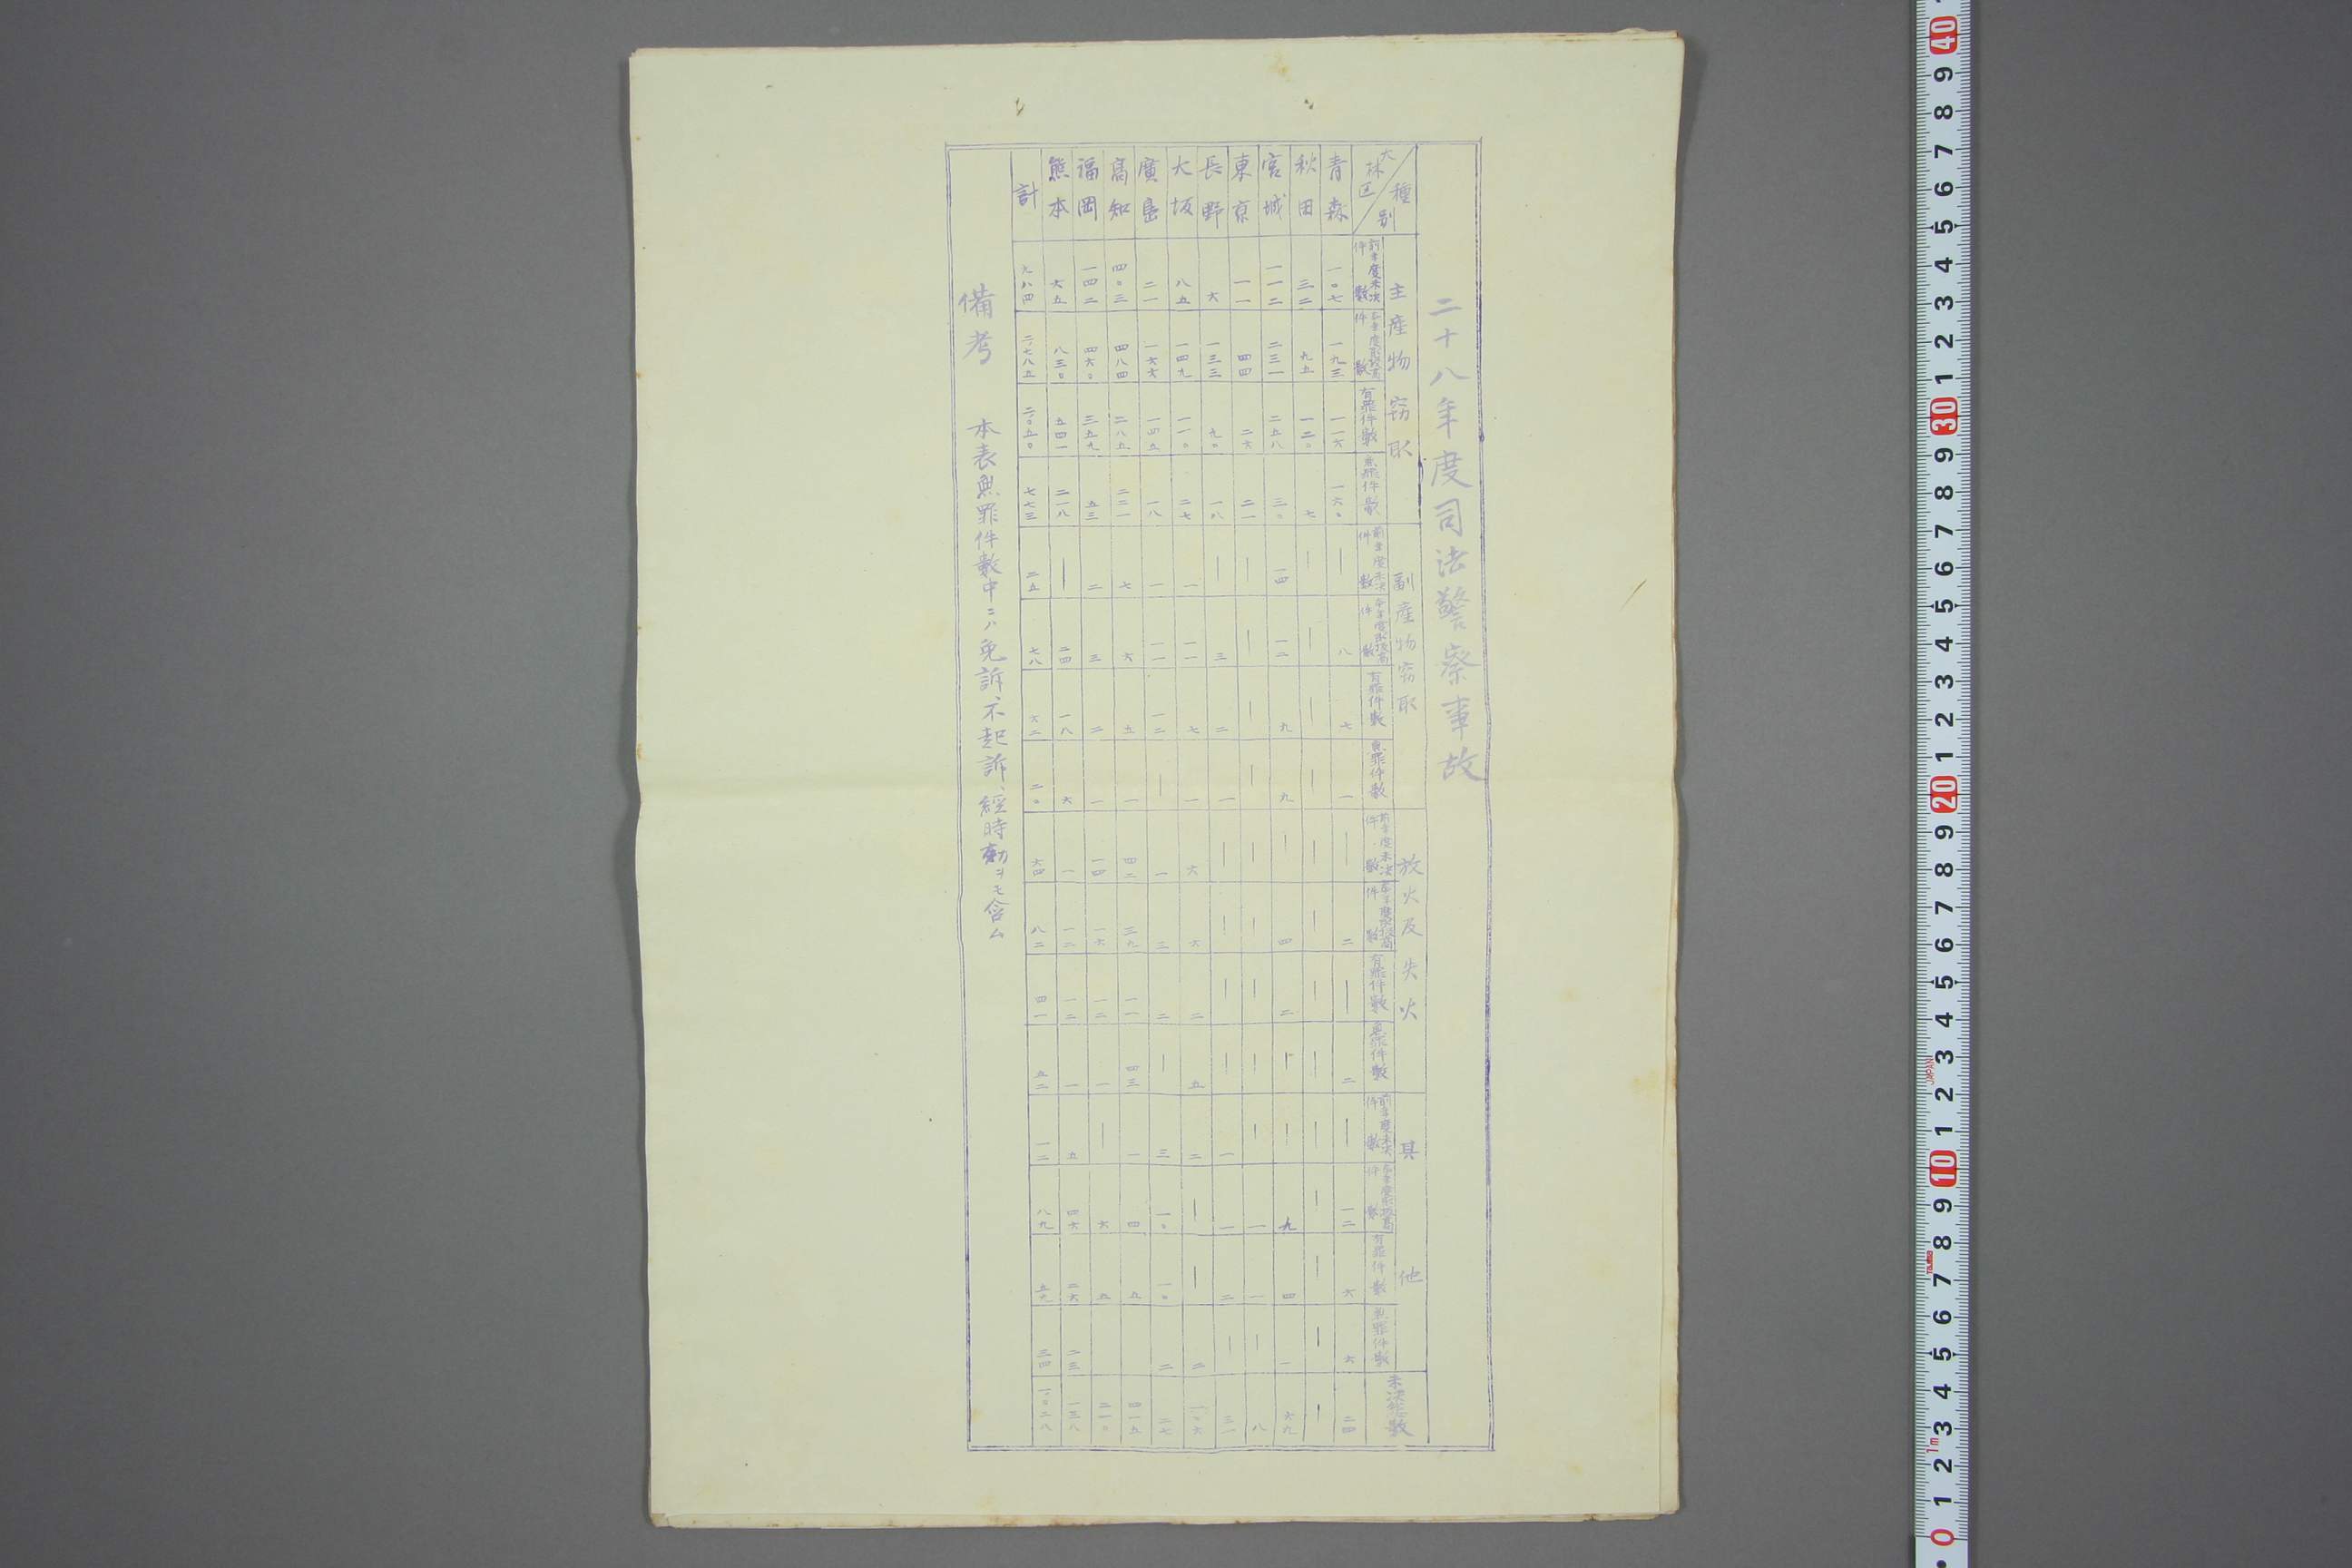 二十八年度司法警察事故
大林区 種別
主産物窃取
副産物窃取
放火及失火
其他
前年度未決件数
有罪件数
無罪件数
前年度未決件数
有罪件数
無罪件数
前年度未決件数
有罪件数
無罪件数
前年度未決件数
有罪件数
無罪件数
未決総数
青森 一〇七 一九三 一一六 一六〇 ― 八 七 一 ― 二 ― 二 ― 一二 六 六 二四
秋田 三二 九五 一二〇 七 ― ― ― ― ― ― ― ― ― ― ― ― ―
宮城 一一二 二三一 二五八 三〇 一四 一二 九 九 ― 四 二 ― ― 九 四 一 六九
東京 一一 四四 二六 二一 ― ― ― ― ― ― ― ― ― 一 一 ― 八
長野 六 一三三 九〇 一八 ― 三 二 一 ― ― ― ― 一 一 二 ― 三一
大坂 八五 一四九 一一〇 二七 一 一一 七 一 六 六 二 五 二 ― ― 二 一〇六
廣島 二一 一六六 一四五 一八 一 一一 一二 ― 一 三 二 ― 三 一〇 一〇 二 二七
高知 四〇三 四八四 二八五 二二一 七 六 五 一 四二 三九 一一 四三 一 四 五 四一五
福岡 一四二 四六〇 三五九 五三 二 三 二 一 一四 一六 一二 一 ― 六 五 二一〇
熊本 六五 八三〇 五四一 二一八 ― 二四 一八 六 一 一二 一二 一 五 四六 二六 二三 一三八
計 九八四 二、七八五 二、〇五〇 七七三 二五 七八 六二 二〇 六四 八二 四一 五二 一二 八九 五九 三四 一、〇二八
備考 本表無罪件數中ニハ免訴、不起訴、經時効ヲモ含ム